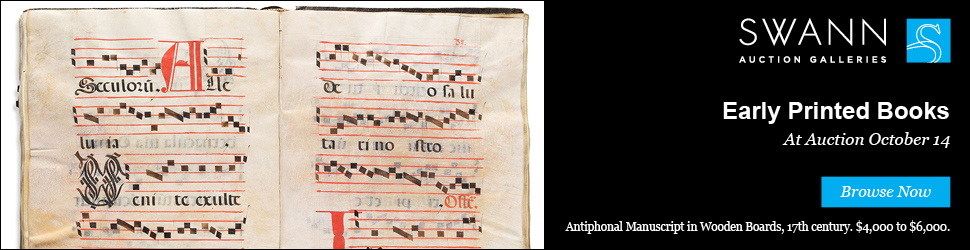 Seculorū. Alle
luia
Venite exulte
de o salu
ta ri no stro
SWANN
AUCTION GALLERIES
Early Printed Books
At Auction October 14
Browse Now
Antiphonal Manuscript in Wooden Boards, 17th century. $4,000 to $6,000.